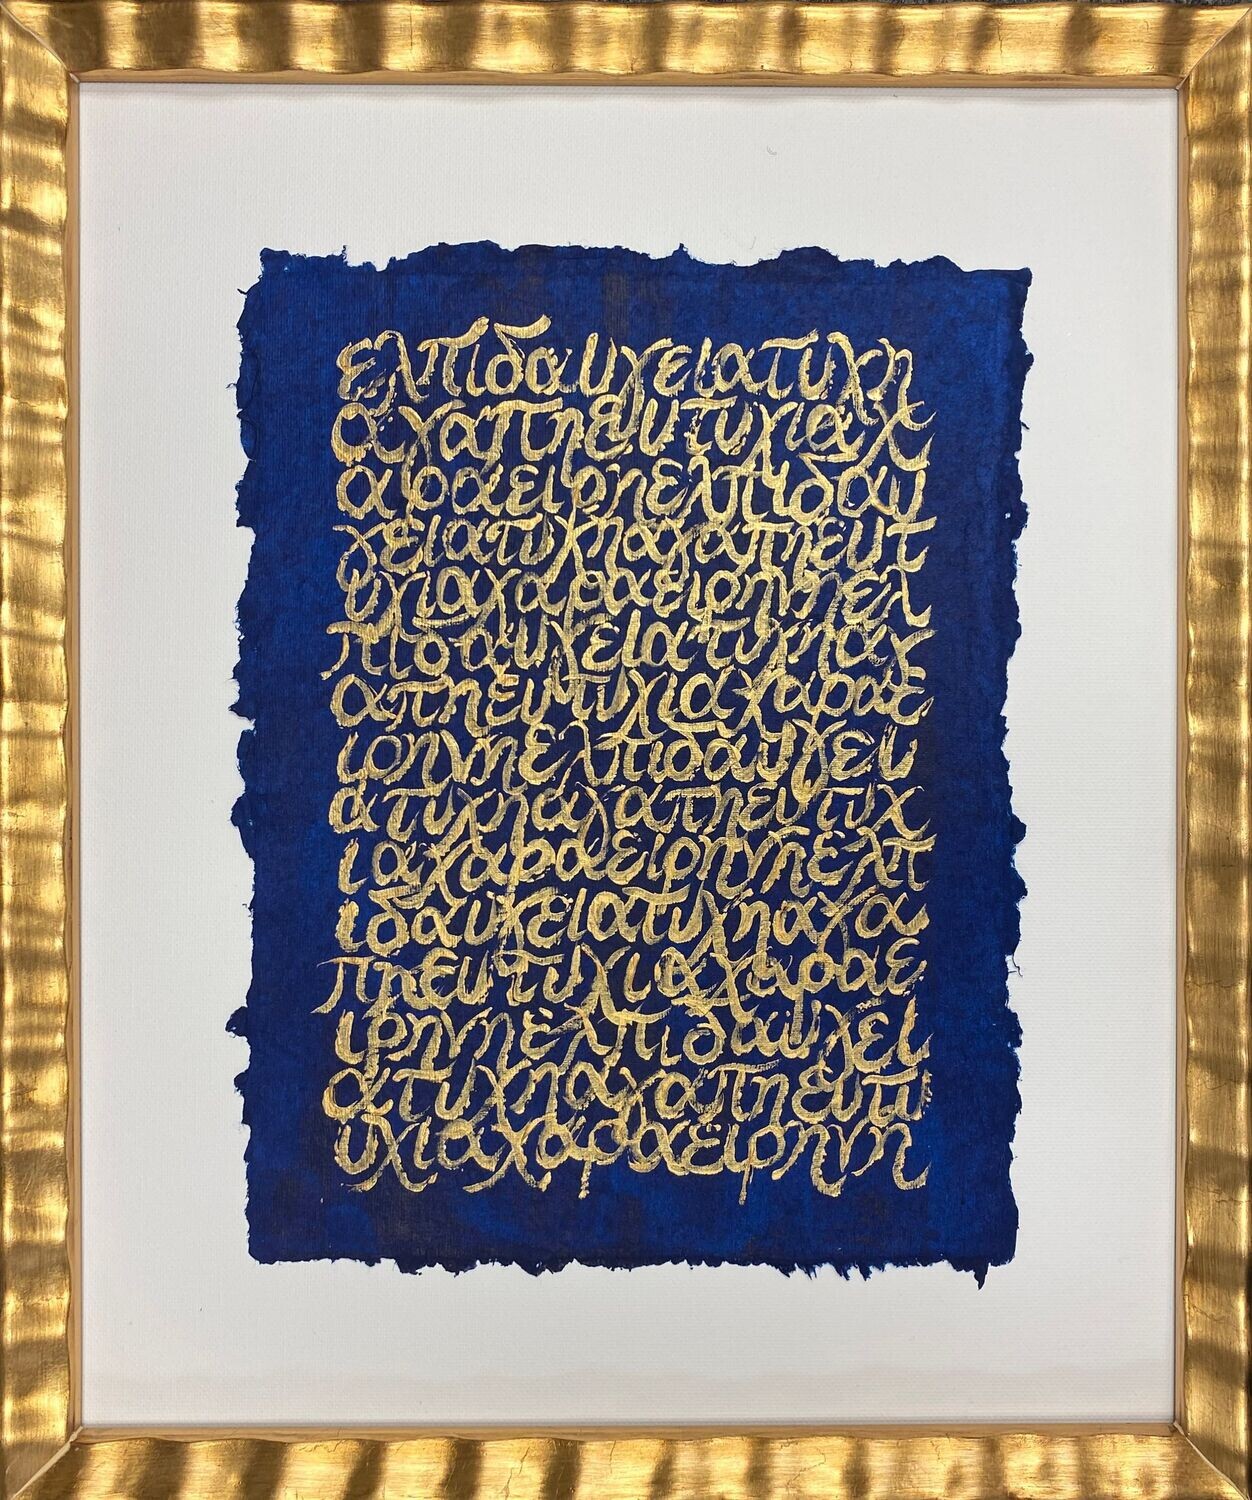 ελπιδαυγειατυχη
αγαπηευτυχιαχ
αραειρηελπιδαυ
γειατυχηαγαπηευτ
υχιαχαραειρηνηελ
πιδαυγειατυχηαγ
απηευτυχιαχαραε
ιρηνηελπιδαυγει
ατυχηαγαπηευτυχ
ιαχαραειρηνηελπ
ιδαυγειατυχηαγα
πηευτυχιαχαραε
ιρηνηελπιδαυγει
ατυχηαγαπηευτυ
υχιαχαραειρηνη